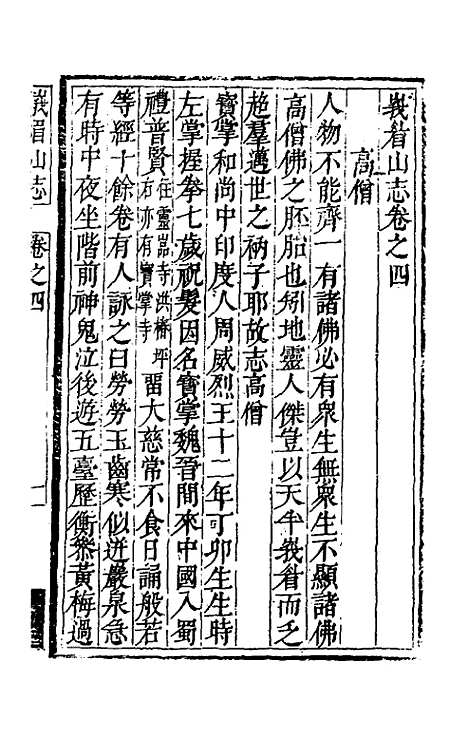 峩眉山志卷之四
高僧
人物不能齊一有諸佛必有衆生無衆生不顯諸佛
高僧佛之胚胎也矧地靈人傑豈以天半峩眉而乏
超羣邁世之衲子耶故志高僧
寶掌和尚中印度人周威烈王十二年丁卯生生時
左掌握拳七歲祝髮因名寶掌魏晉間來中國入蜀
禮普賢住靈嵓寺洪椿坪右亦有寶掌寺畱大慈常不食日誦般若
等經十餘卷有人詠之曰勞勞玉齒寒似迸巖泉急
有時中夜坐階前神鬼泣後遊五臺歷衡黃梅過
峩眉山志
卷之四
一